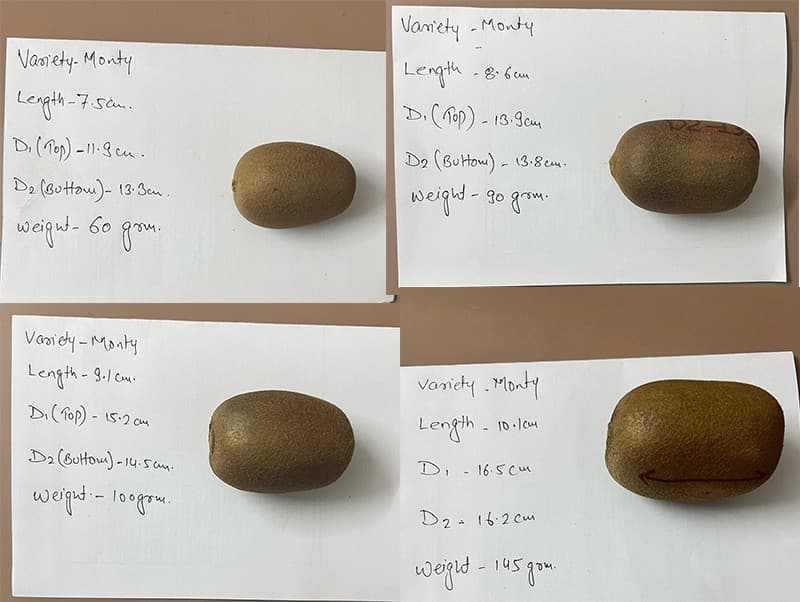 Variety - Monty
Length - 7.5 cm.
D1 (Top) - 11.9 cm.
D2 (Buttom) - 13.3 cm.
weight - 60 grm.
Variety - Monty
Length - 8.6 cm
D1 (Top) - 13.9 cm
D2 (Buttom) - 13.8 cm.
Weight - 90 grm.
D2-13
Variety - Monty
Length - 9.1 cm.
D1 (Top) - 15.2 cm
D2 (Buttom) - 14.5 cm.
Weight - 100 grm.
Variety - Monty
Length - 10.1 cm
D1 - 16.5 cm
D2 - 16.2 cm
Weight - 145 grm.